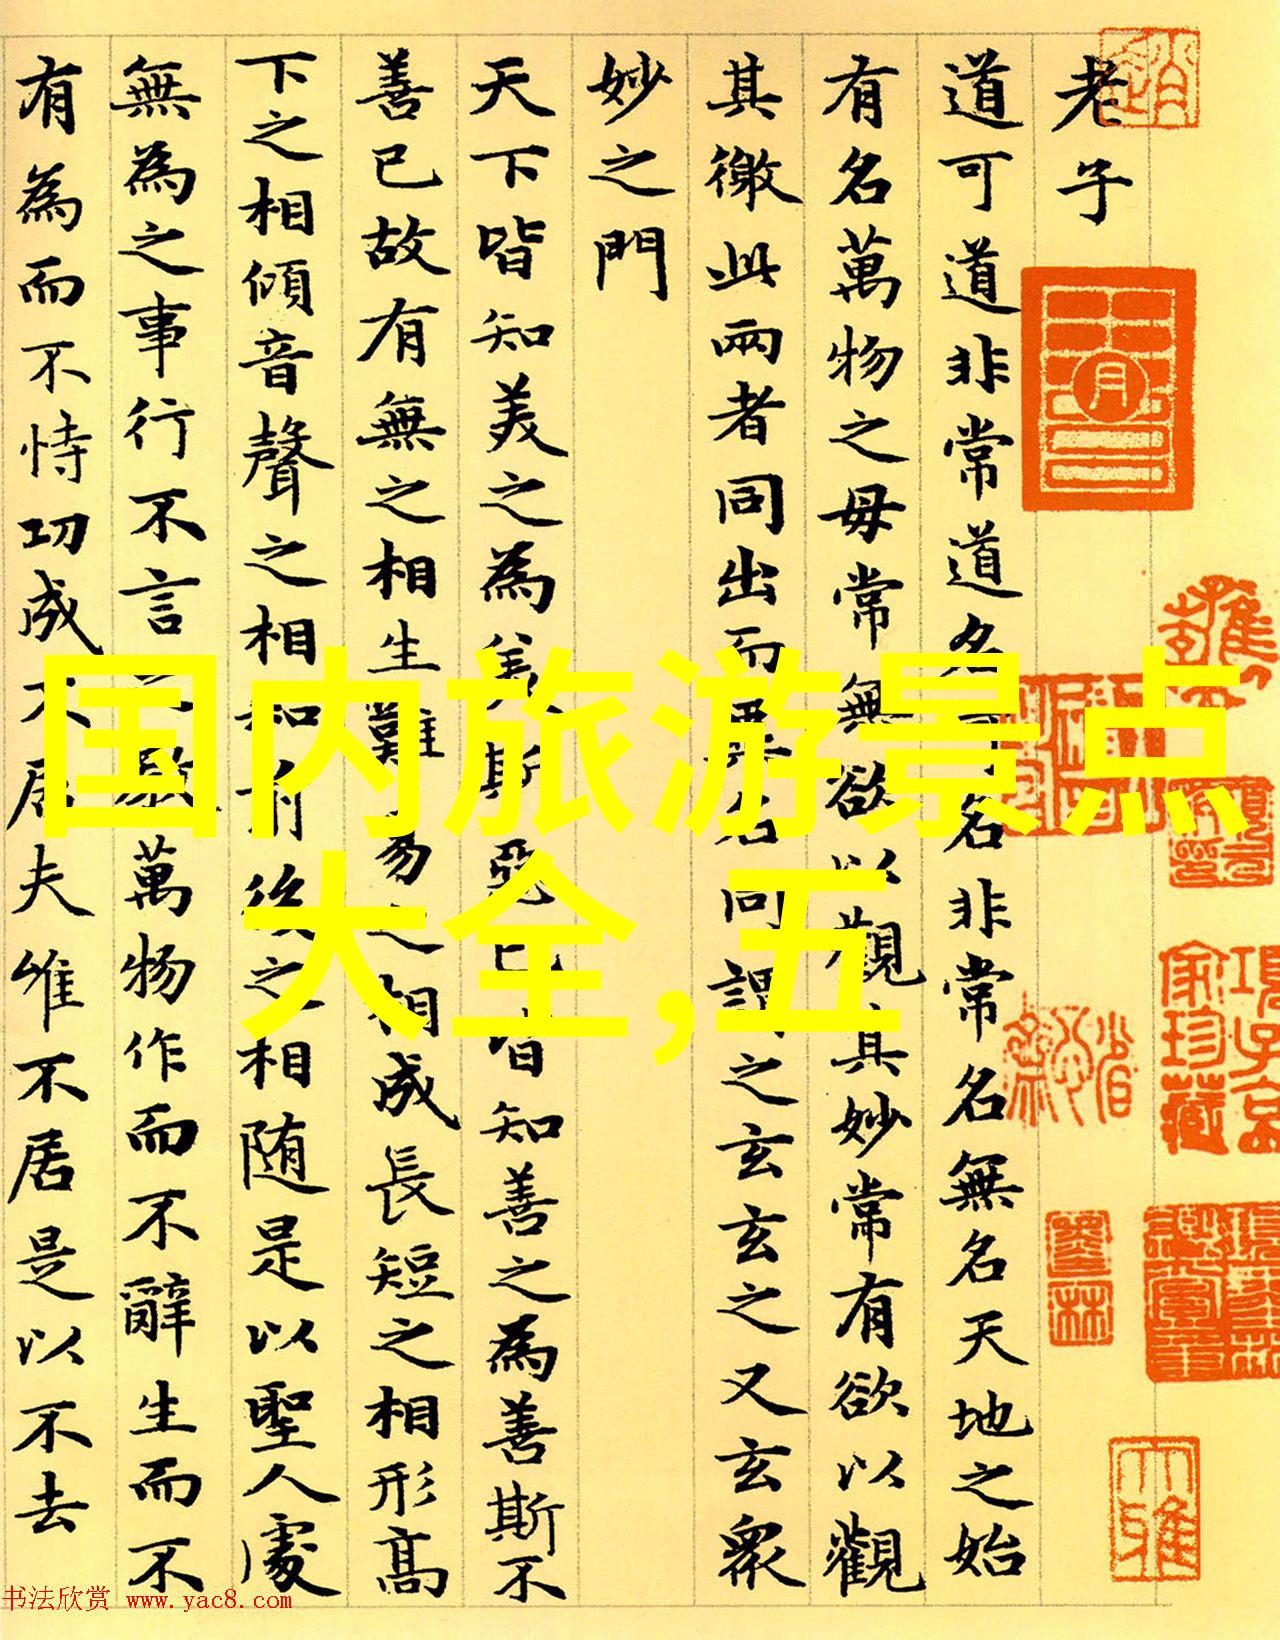 老子
道可道非常道名可名非常名無名天地之始
有名萬物之母常無欲以觀其妙常有欲以觀
其徼此兩者同出而異名同謂之玄玄之又玄衆
妙之門
天下皆知美之為美斯惡已皆知善之為善斯不
善已故有無之相生難易之相成長短之相形高
下之相傾音聲之相和前後之相随是以聖人處
無為之事行不言之教萬物作而不辭生而不
有為而不恃功成不居夫唯不居是以不去
項子京
家珍藏
国内旅游景点
大全,五
书法欣赏 www.yac8.com